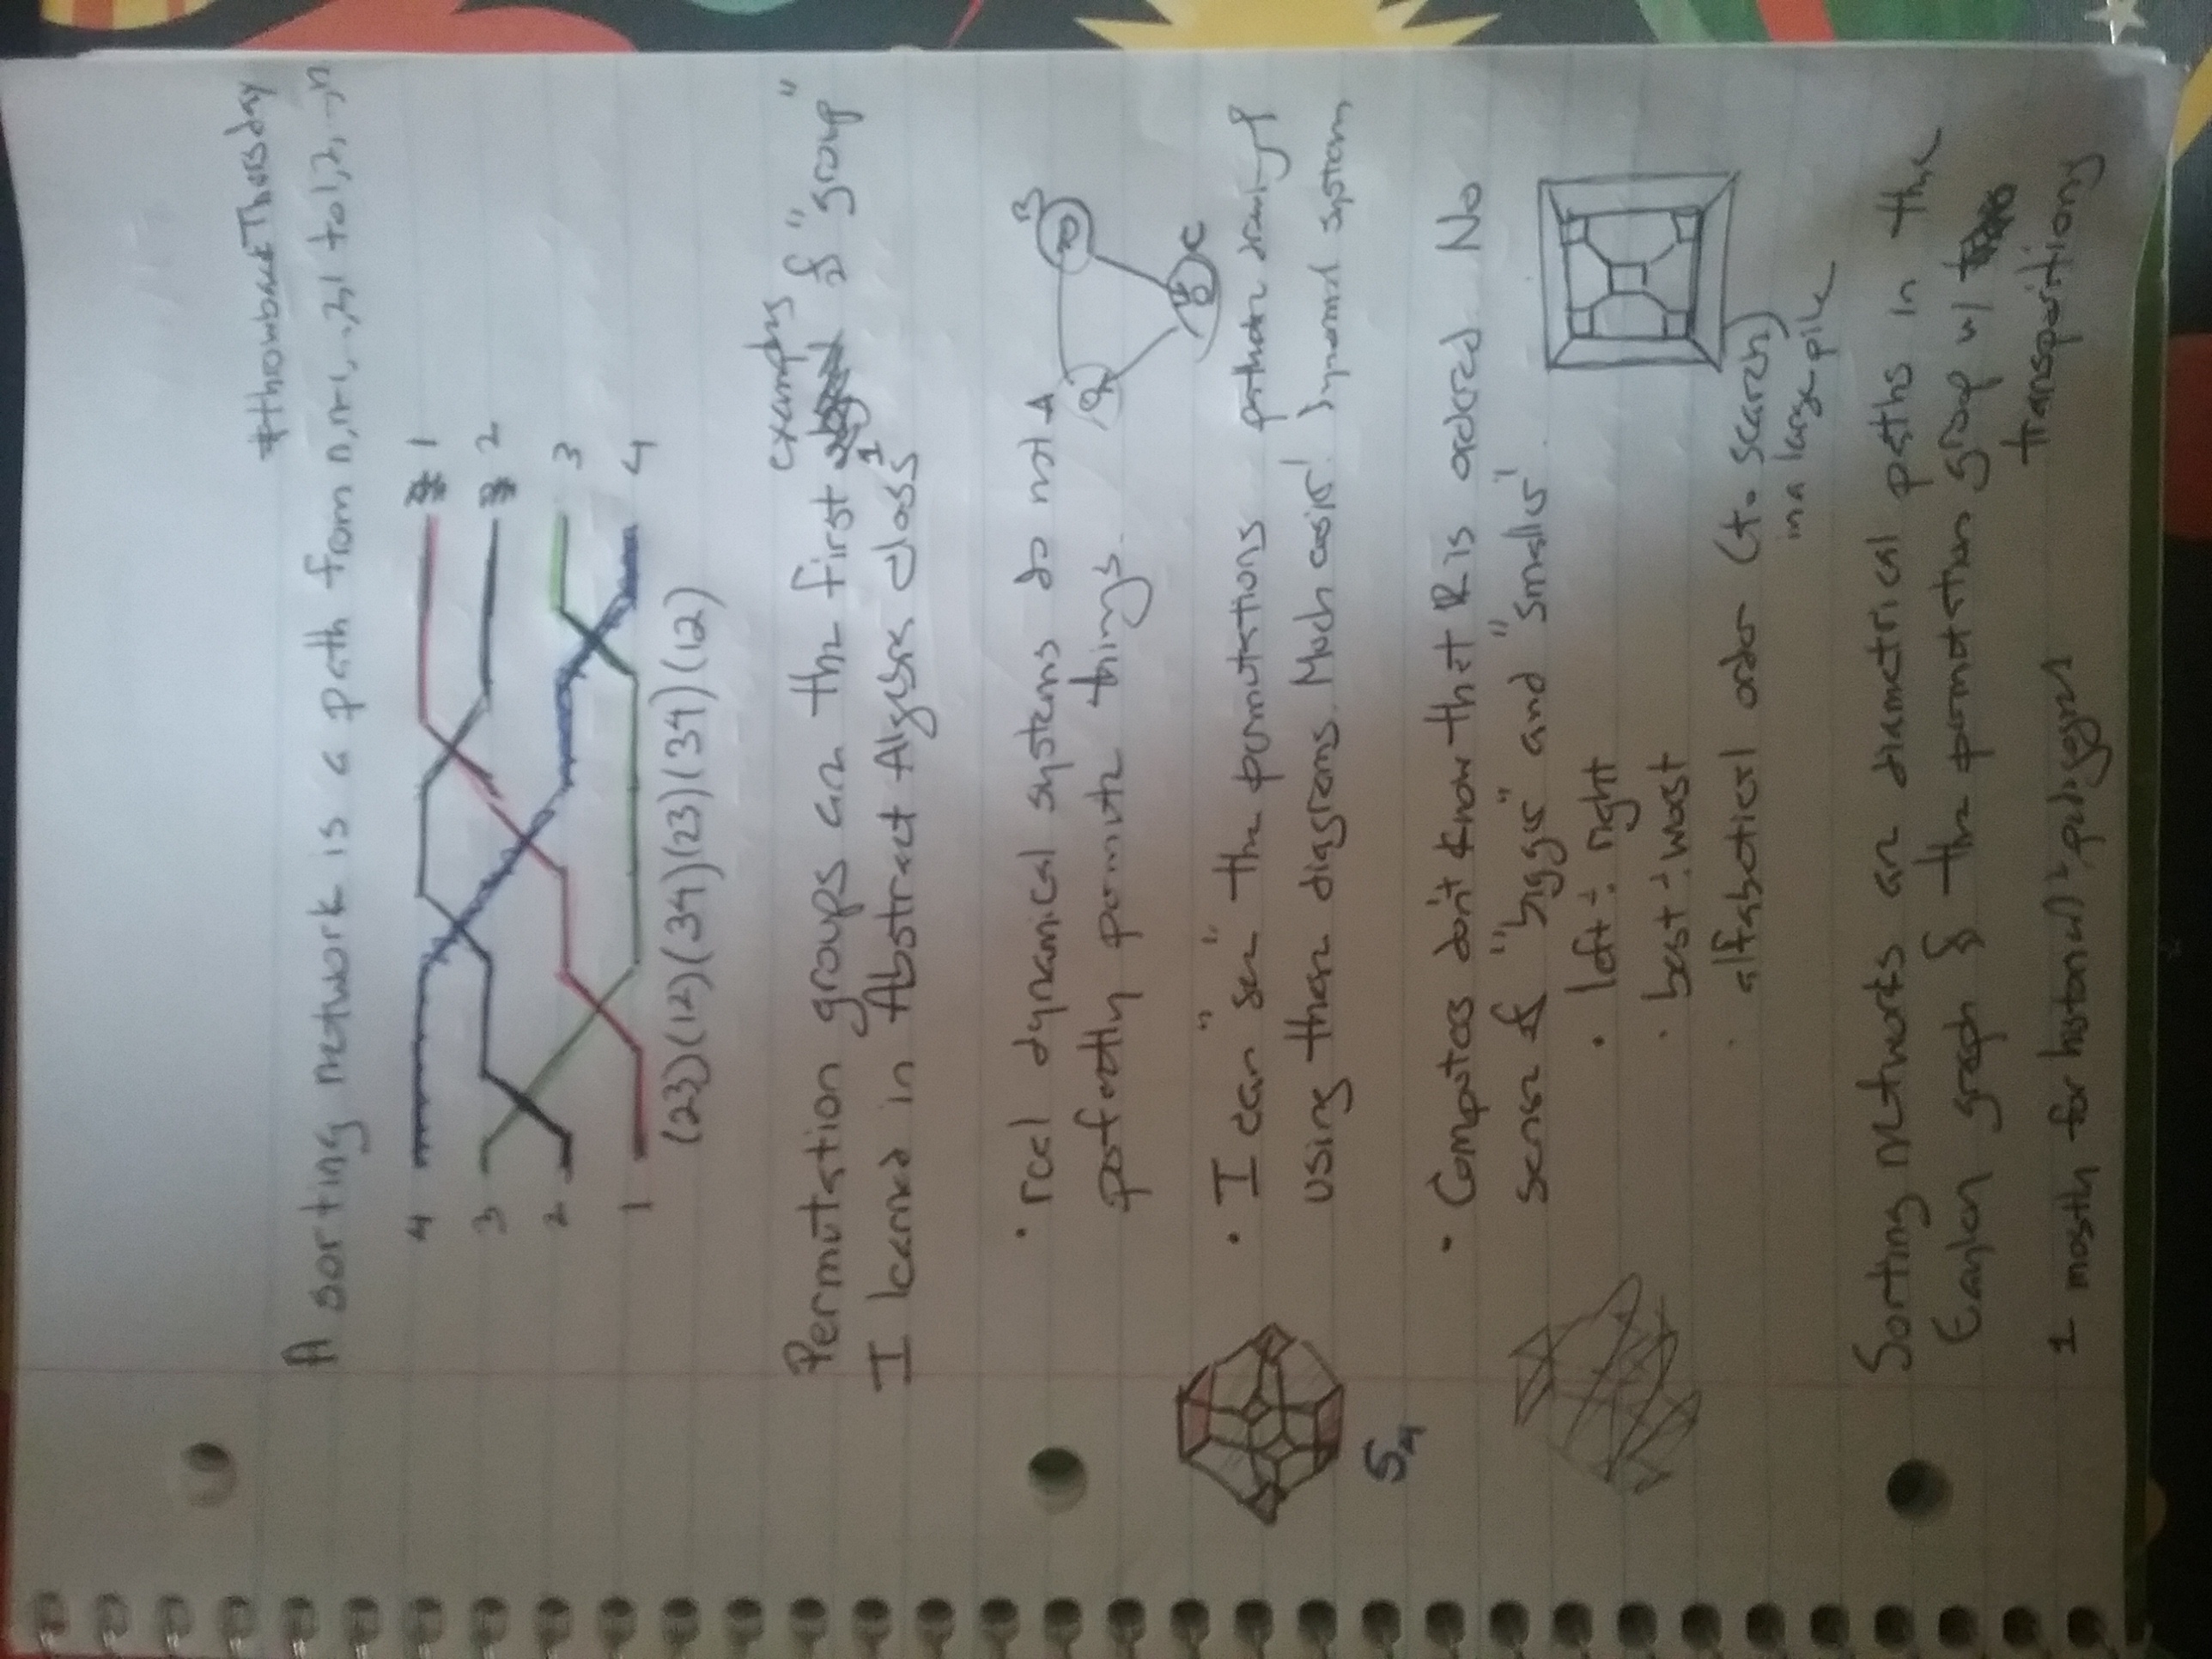 #throwbackThursday
A sorting network is a path from n,n-1,..,2,1 to 1,2,..,n
4 1
3 2
2 3
1 4
(23)(12)(34)(23)(34)(12)
examples
Permutation groups are the first of "group"
I learned in Abstract Algebra class¹
• real dynamical systems do not
perfectly permute things.
A B
C
• I can "see" the permutations
using these diagrams. Much easier!
pathetic drawing of
dynamical systems
S₄
• Computers don't know that ℝ is ordered. No
sense of "bigger" and "smaller".
• left ÷ right
• best ÷ worst
• alfabetical order (to search)
in a large pile
Sorting networks are diametrical paths in the
Cayley graph of the permutation group w/
transpositions
1 mostly for historical